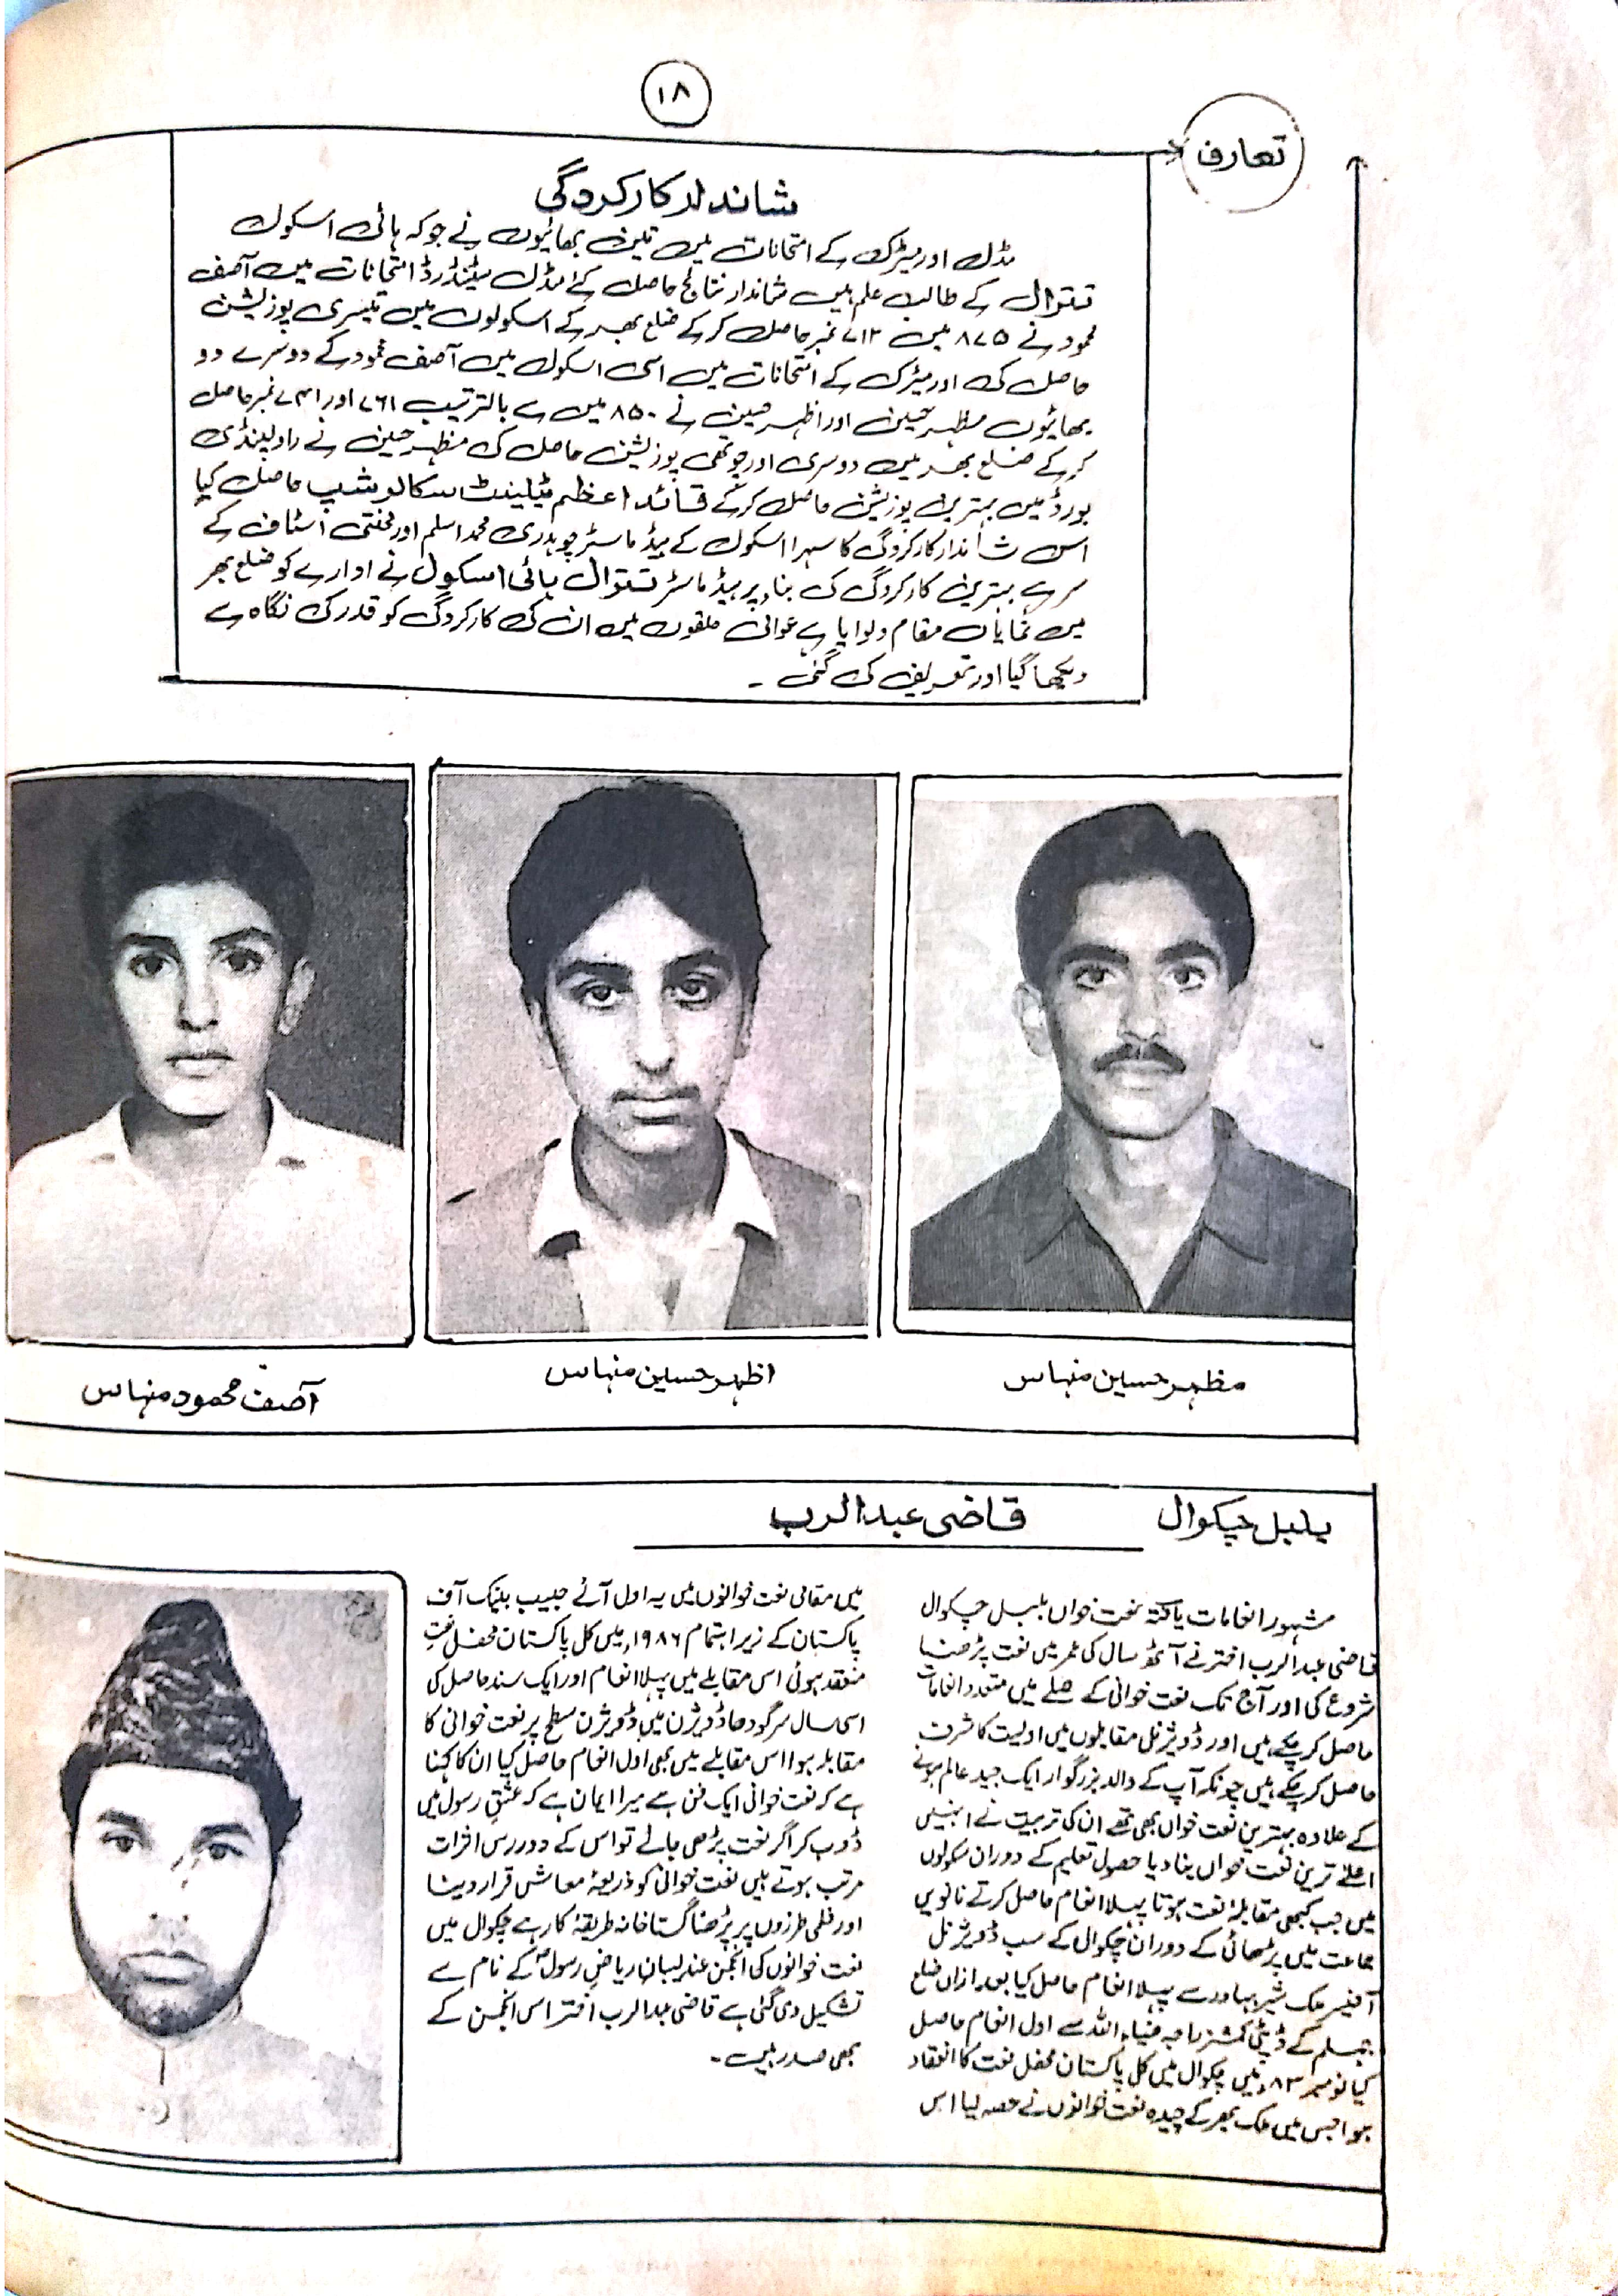 ۱۸
تعارف
شاندار کارکردگی
مڈل اور میٹرک کے امتحانات میں تین بھائیوں نے جو کہ ہائی اسکول
تتوال کے طالب علم ہیں شاندار نتائج حاصل کئے مڈل سٹینڈرڈ امتحانات میں آصف
محمود نے ۸۷۵ میں ۷۱۲ نمبر حاصل کر کے ضلع بھر کے اسکولوں میں تیسری پوزیشن
حاصل کی اور میٹرک کے امتحانات میں اسی اسکول میں آصف محمود کے دوسرے دو
بھائیوں مظہر حسین اور اظہر حسین نے ۸۵۰ میں سے بالترتیب ۷۶۱ اور ۷۳۱ نمبر حاصل
کر کے ضلع بھر میں دوسری اور چوتھی پوزیشن حاصل کی مظہر حسین نے راولپنڈی
بورڈ میں بہترین پوزیشن حاصل کر کے قائد اعظم ٹیلینٹ سکالر شپ حاصل کیا
اس شاندار کارکردگی کا سہرا اسکول کے ہیڈ ماسٹر چوہدری محمد اسلم اور محنتی اسٹاف کے
سر ہے بہترین کارکردگی کی بناء پر ہیڈ ماسٹر تتوال ہائی اسکول نے ادارے کو ضلع بھر
میں نمایاں مقام دلوایا ہے عوامی حلقوں میں ان کی کارکردگی کو قدر کی نگاہ سے
دیکھا گیا اور تعریف کی گئی ۔
مظہر حسین منہاس
اظہر حسین منہاس
آصف محمود منہاس
بلبل چکوال قاضی عبدالرب
مشہور انعامات یافتہ نعت خواں بلبل چکوال
قاضی عبدالرب اختر نے آٹھ سال کی عمر میں نعت پڑھنا
شروع کی اور آج تک نعت خوانی کے صلے میں متعدد انعامات
حاصل کر چکے ہیں اور ڈویژنل مقابلوں میں اولیت کا شرف
حاصل کر چکے ہیں چونکہ آپ کے والد بزرگوار ایک جید عالم ہونے
کے علاوہ بہترین نعت خواں بھی تھے ان کی تربیت نے انہیں
اعلےٰ ترین نعت خواں بنا دیا حصول تعلیم کے دوران سکولوں
میں جب کبھی مقابلۂ نعت ہوتا پہلا انعام حاصل کرتے نانویں
جماعت میں پڑھائی کے دوران چکوال کے سب ڈویژنل
آفیسر ملک شیر بہادر سے پہلا انعام حاصل کیا بعد ازاں ضلع
جہلم کے ڈپٹی کمشنر راجہ ضیاء اللہ سے اول انعام حاصل
کیا نومبر ۸۳ء میں چکوال میں کل پاکستان محفل نعت کا انعقاد
ہوا جس میں ملک بھر کے چیدہ نعت خوانوں نے حصہ لیا اس
میں مقامی نعت خوانوں میں یہ اول آئے حبیب بینک آف
پاکستان کے زیر اہتمام ۱۹۸۶ء میں کل پاکستان محفل نعت
منعقد ہوئی اس مقابلے میں پہلا انعام اور ایک سند حاصل کی
اسی سال سرگودھا ڈویژن میں ڈویژن سطح پر نعت خوانی کا
مقابلہ ہوا اس مقابلے میں بھی اول انعام حاصل کیا ان کا کہنا
ہے کہ نعت خوانی ایک فن ہے میرا ایمان ہے کہ عشق رسول میں
ڈوب کر اگر نعت پڑھی جائے تو اس کے دور رس اثرات
مرتب ہوتے ہیں نعت خوانی کو ذریعۂ معاش قرار دینا
اور فلمی طرزوں پر پڑھنا گستاخانہ طریقۂ کار ہے چکوال میں
نعت خوانوں کی انجمن عندلیبان ریاض رسولؐ کے نام سے
تشکیل دی گئی ہے قاضی عبدالرب اختر اس انجمن کے
بھی صدر ہیں ۔